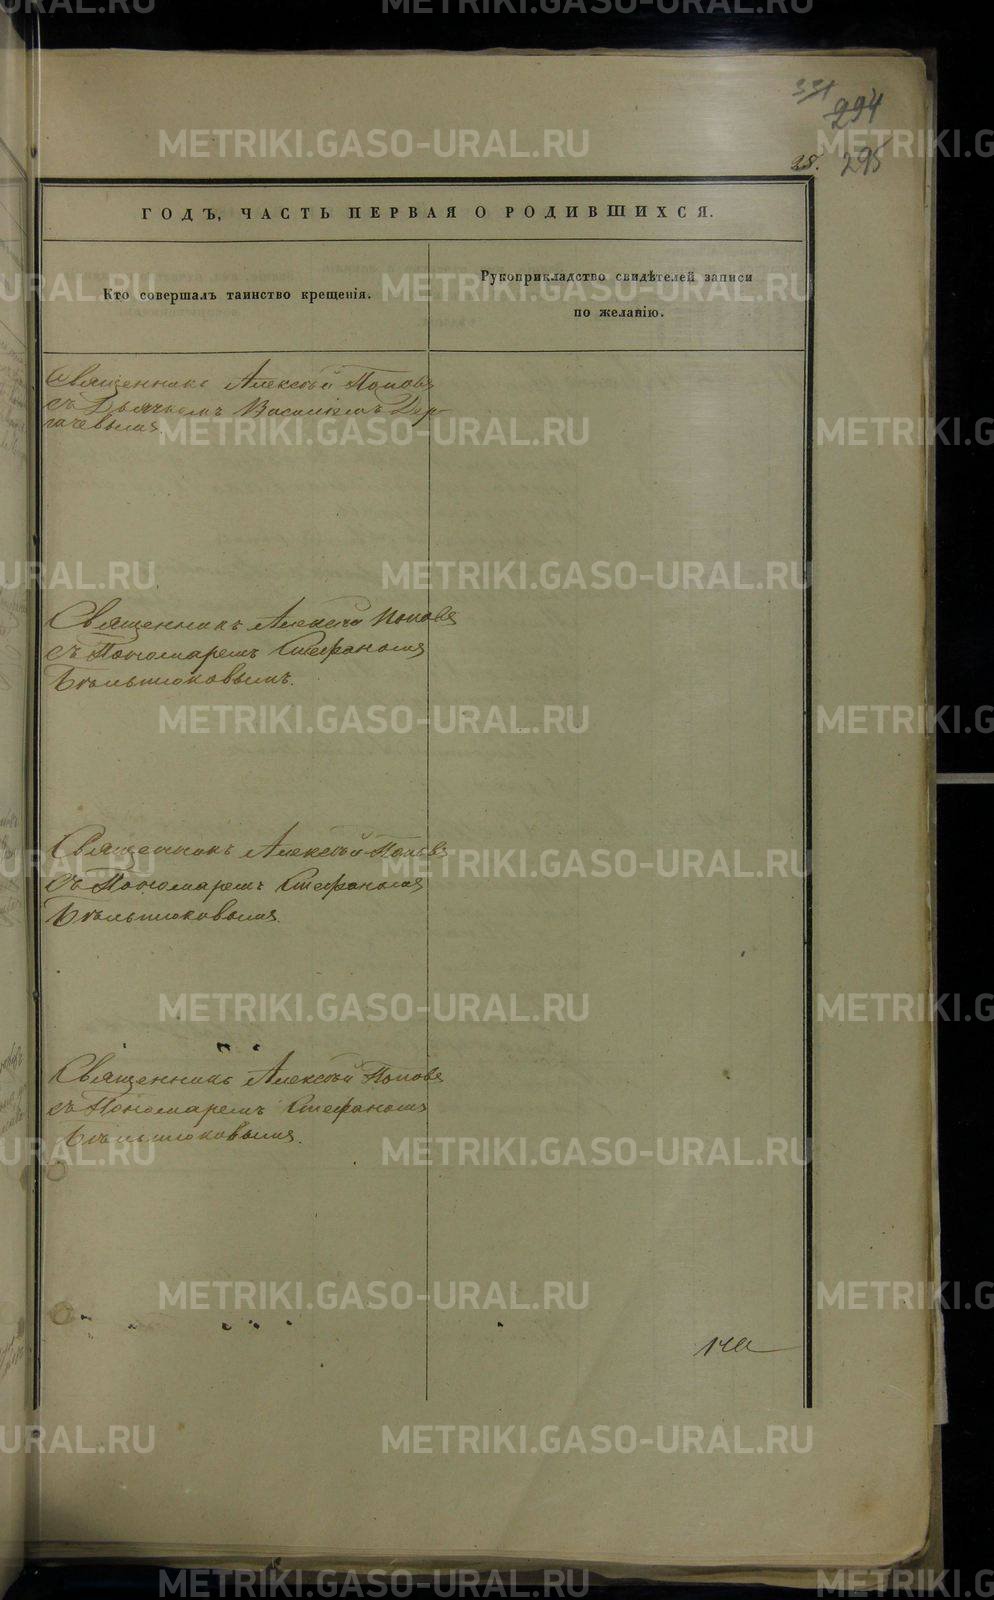 294
28. 295
ГОДЪ, ЧАСТЬ ПЕРВАЯ О РОДИВШИХСЯ.
Кто совершалъ таинство крещенія.
Рукоприкладство свидѣтелей записи
по желанію.
Священникъ Алексѣй Поповъ
съ Дьячкомъ Василіемъ Дер-
гачевымъ.
Священникъ Алексѣй Поповъ
съ Пономаремъ Стефаномъ
Бѣльтюковымъ.
Священникъ Алексѣй Поповъ
съ Пономаремъ Стефаномъ
Бѣльтюковымъ.
Священникъ Алексѣй Поповъ
съ Пономаремъ Стефаномъ
Бѣльтюковымъ.
METRIKI.GASO-URAL.RU